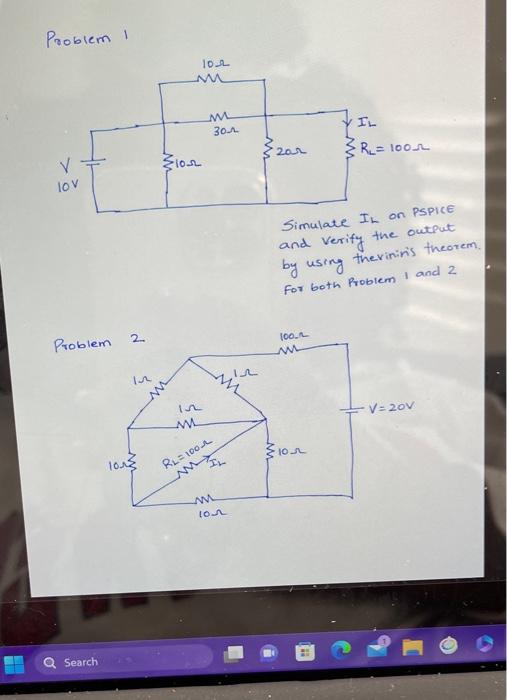 Problem 1
10Ω
30Ω
IL
V
10V
10Ω
20Ω
RL=100Ω
Simulate IL on PSPICE
and verify the output
by using thevinin's theorem.
For both Problem 1 and 2
Problem 2
100Ω
1Ω
1Ω
1Ω
V=20V
10Ω
RL=100Ω
IL
10Ω
10Ω
Search
1